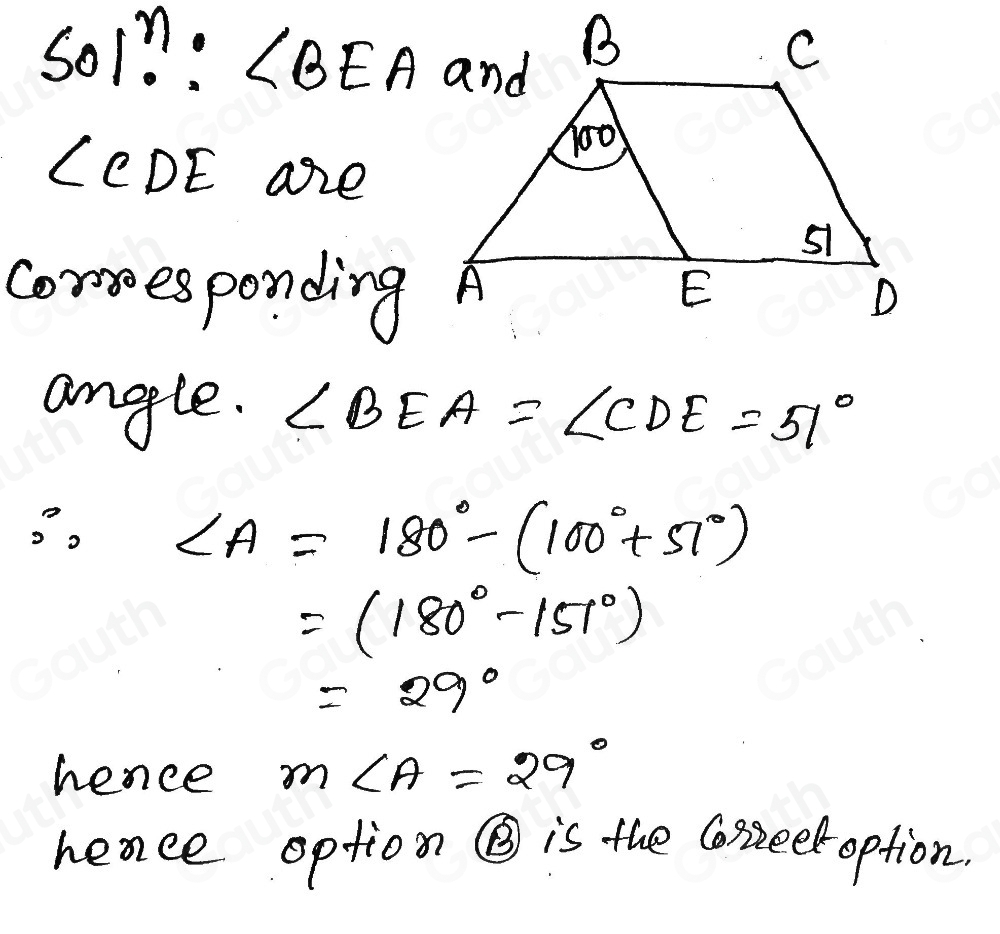 Solⁿ.: ∠BEA and
∠CDE are
corresponding
angle. ∠BEA = ∠CDE = 51°
∴ ∠A = 180° - (100° + 51°)
= (180° - 151°)
= 29°
hence m∠A = 29°
hence option Ⓑ is the Correct option.
B C
100
51
A E D